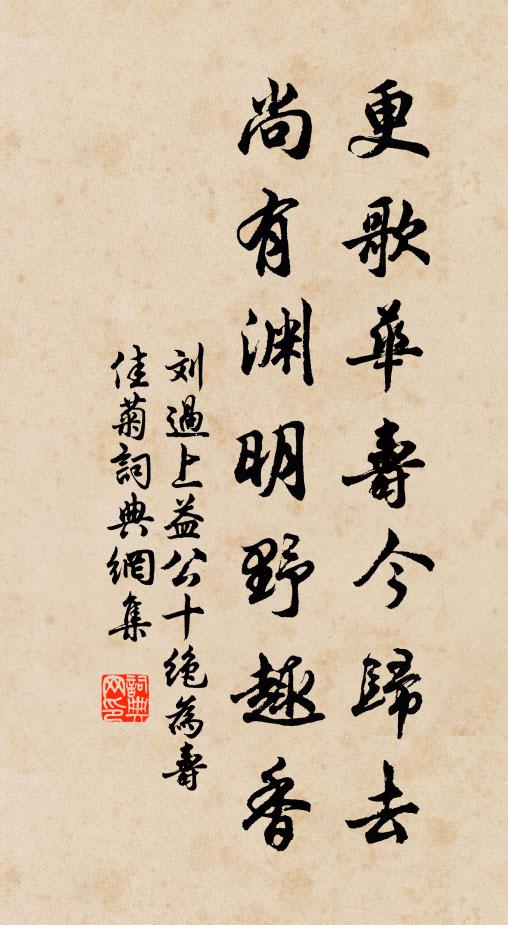 更歌華壽今歸去
尚有淵明野趣香
刘過上益公十絶為壽
佳菊詞典網集
詞典網印